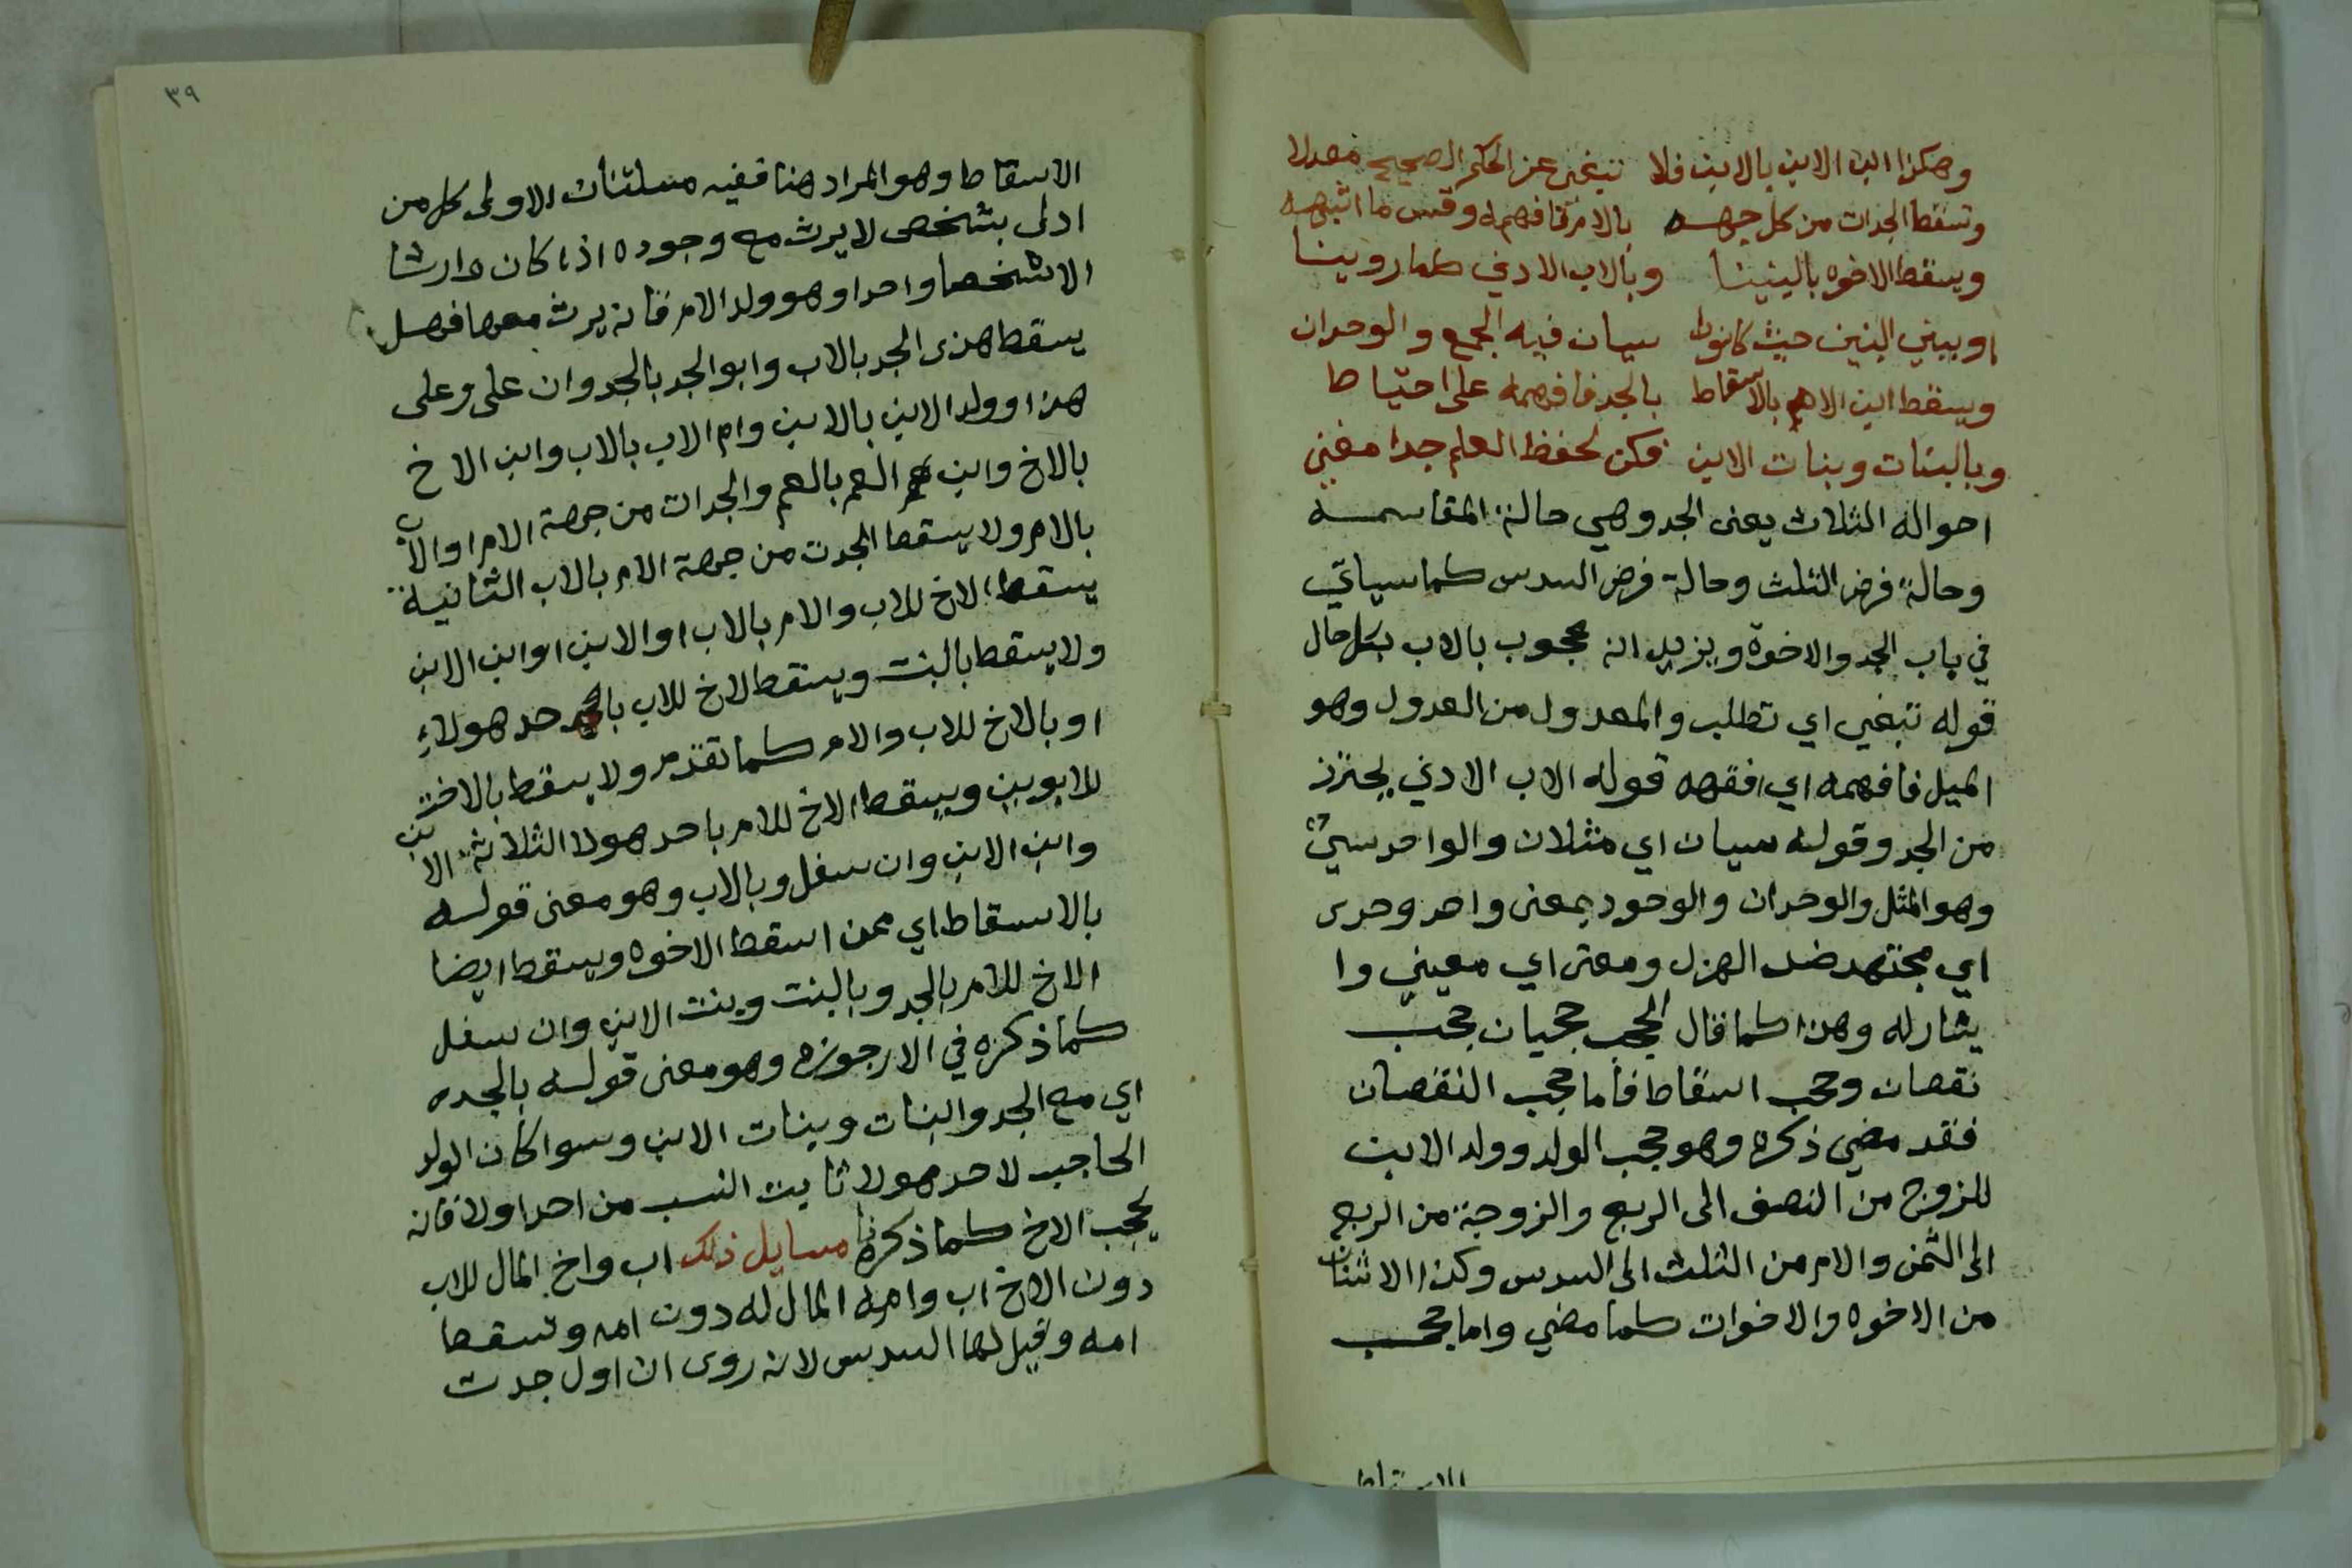 وهكذا ابن الابن بالابن فلا تبغي عن الحكم الصحيح معدلا
وتسقط الجدات من كل جهه بالام فافهمه وقس ما اشبهه
ويسقط الاخوه بالبنينا وبالاب الادني كما روينا
او ببني البنين حيث كانوا سيان فيه الجمع والوحدان
ويسقط ابن الام بالاسقاط بالجد فافهمه على احتياط
وبالبنات وبنات الابن فكن لحفظ العلم جدا مغني
احواله الثلاث يعنى الجد وهي حالة المقاسمه
وحالة فرض الثلث وحالة فرض السدس كما سياتي
في باب الجد والاخوة ويزيد انه محجوب بالاب بكل حال
قوله تبغي اي تطلب والمعدول من العدول وهو
الميل فافهمه اي افقهه قوله الاب الادني يحترز
من الجد وقوله سيان اي مثلان والواحد سيّ
وهو المثل والوحدان والوحود بمعنى واحد وحدى
اي مجتهد ضد الهزل ومعنى اي معيني وا
يشار له وهذا كما قال الحجب حجبان حجب
نقصان وحجب اسقاط فأما حجب النقصان
فقد مضي ذكره وهو حجب الولد وولد الابن
للزوج من النصف الى الربع والزوجة من الربع
الى الثمن والام من الثلث الى السدس وكذا الاثنان
من الاخوه والاخوات كما مضي واما حجب
الاسقاط
٣٩
الاسقاط وهو المراد هنا ففيه مسلتان الاولى كل من
ادلى بشخص لا يرث مع وجوده اذا كان وارثا
الا شخصا واحدا وهو ولد الام فانه يرث معها فهل
يسقط هذى الجد بالاب وابو الجد بالجد وان على وعلى
هذا وولد الابن بالابن وام الاب بالاب وابن الاخ
بالاخ وابن العم بالعم والجدات من جهة الام او الاب
بالام ولا يسقط الجدت من جهة الام بالاب الثانية
يسقط الاخ للاب والام بالاب او الابن او ابن الابن
ولا يسقط بالبنت ويسقط لاخ للاب باحد هولاءِ
او بالاخ للاب والام كما تقدم ولا يسقط بالاخت
للابوين ويسقط الاخ للام باحد هولا الثلاثة الابن
وابن الابن وان سفل وبالاب وهو معنى قوله
بالاسقاط اي ممن اسقط الاخوه ويسقط ايضا
الاخ للام بالجد وبالبنت وبنت الابن وان سفل
كما ذكره في الارجوزه وهو معنى قوله بالجده
اي مع الجد والبنات وبنات الابن وسوا كان الولد
الحاجب لاحد هولا ثابت النسب من احد اولا فانه
يحجب الاخ كما ذكرنا مسايل ذلك اب واخ المال للاب
دون الاخ اب وامه المال له دون امه وتسقط
امه وقيل لها السدس لانه روى ان اول جدت